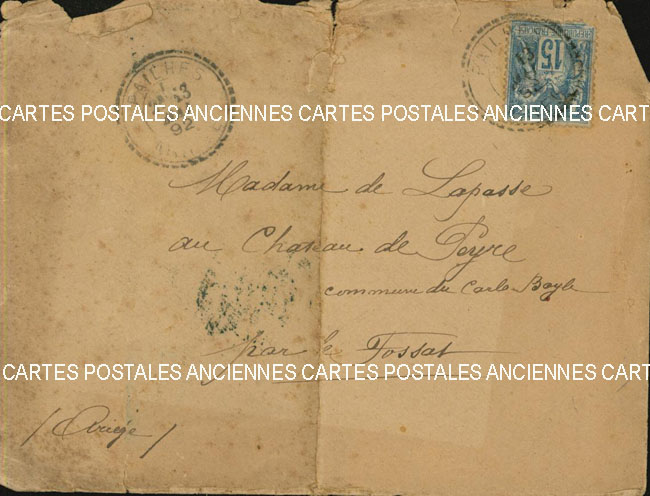 PAILHES
92
15
CARTES POSTALES ANCIENNES CARTES POSTALES ANCIENNES CARTES
Madame de Lapasse
au Chateau de Peyre
commune du Carla-Bayle
par le Fossat
CARTES POSTALES ANCIENNES CARTES POSTALES ANCIENNES CART
/ Ariège /